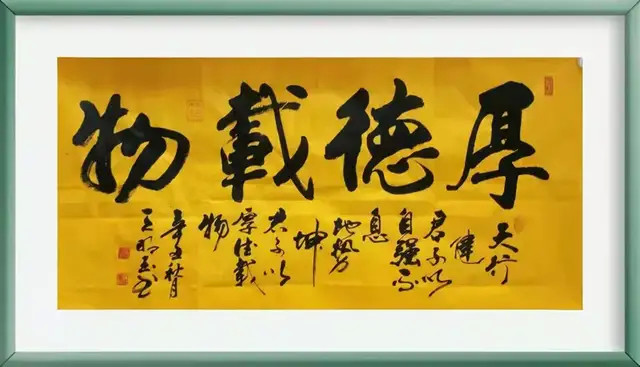 厚德載物
天行
健
君子以
自强不
息
地势
坤
君子以
厚德載
物
辛丑秋月